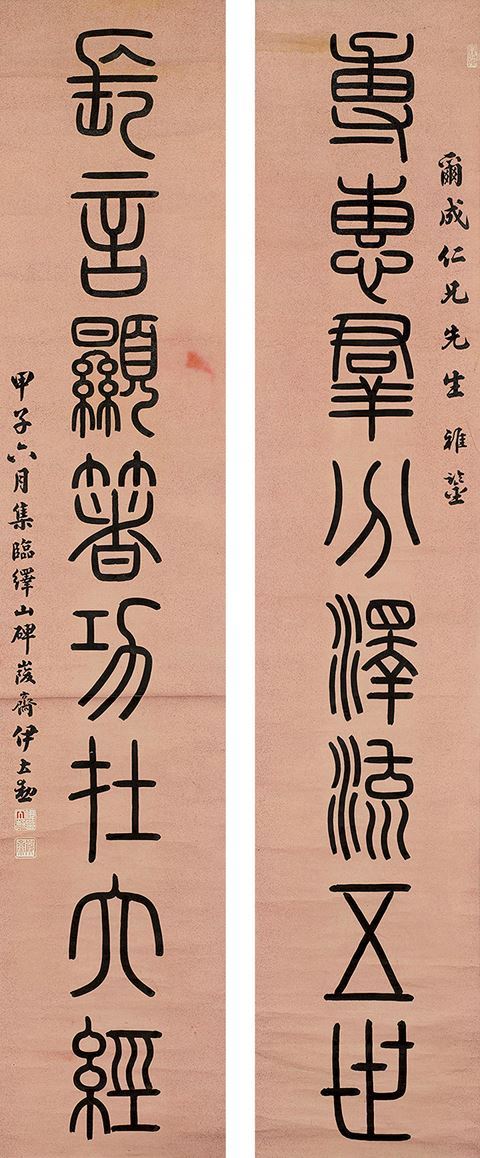 爾成仁兄先生雅鑒
專惠羣分澤流五世
長言顯箸功在六經
甲子六月集臨繹山碑峻齋伊立勳